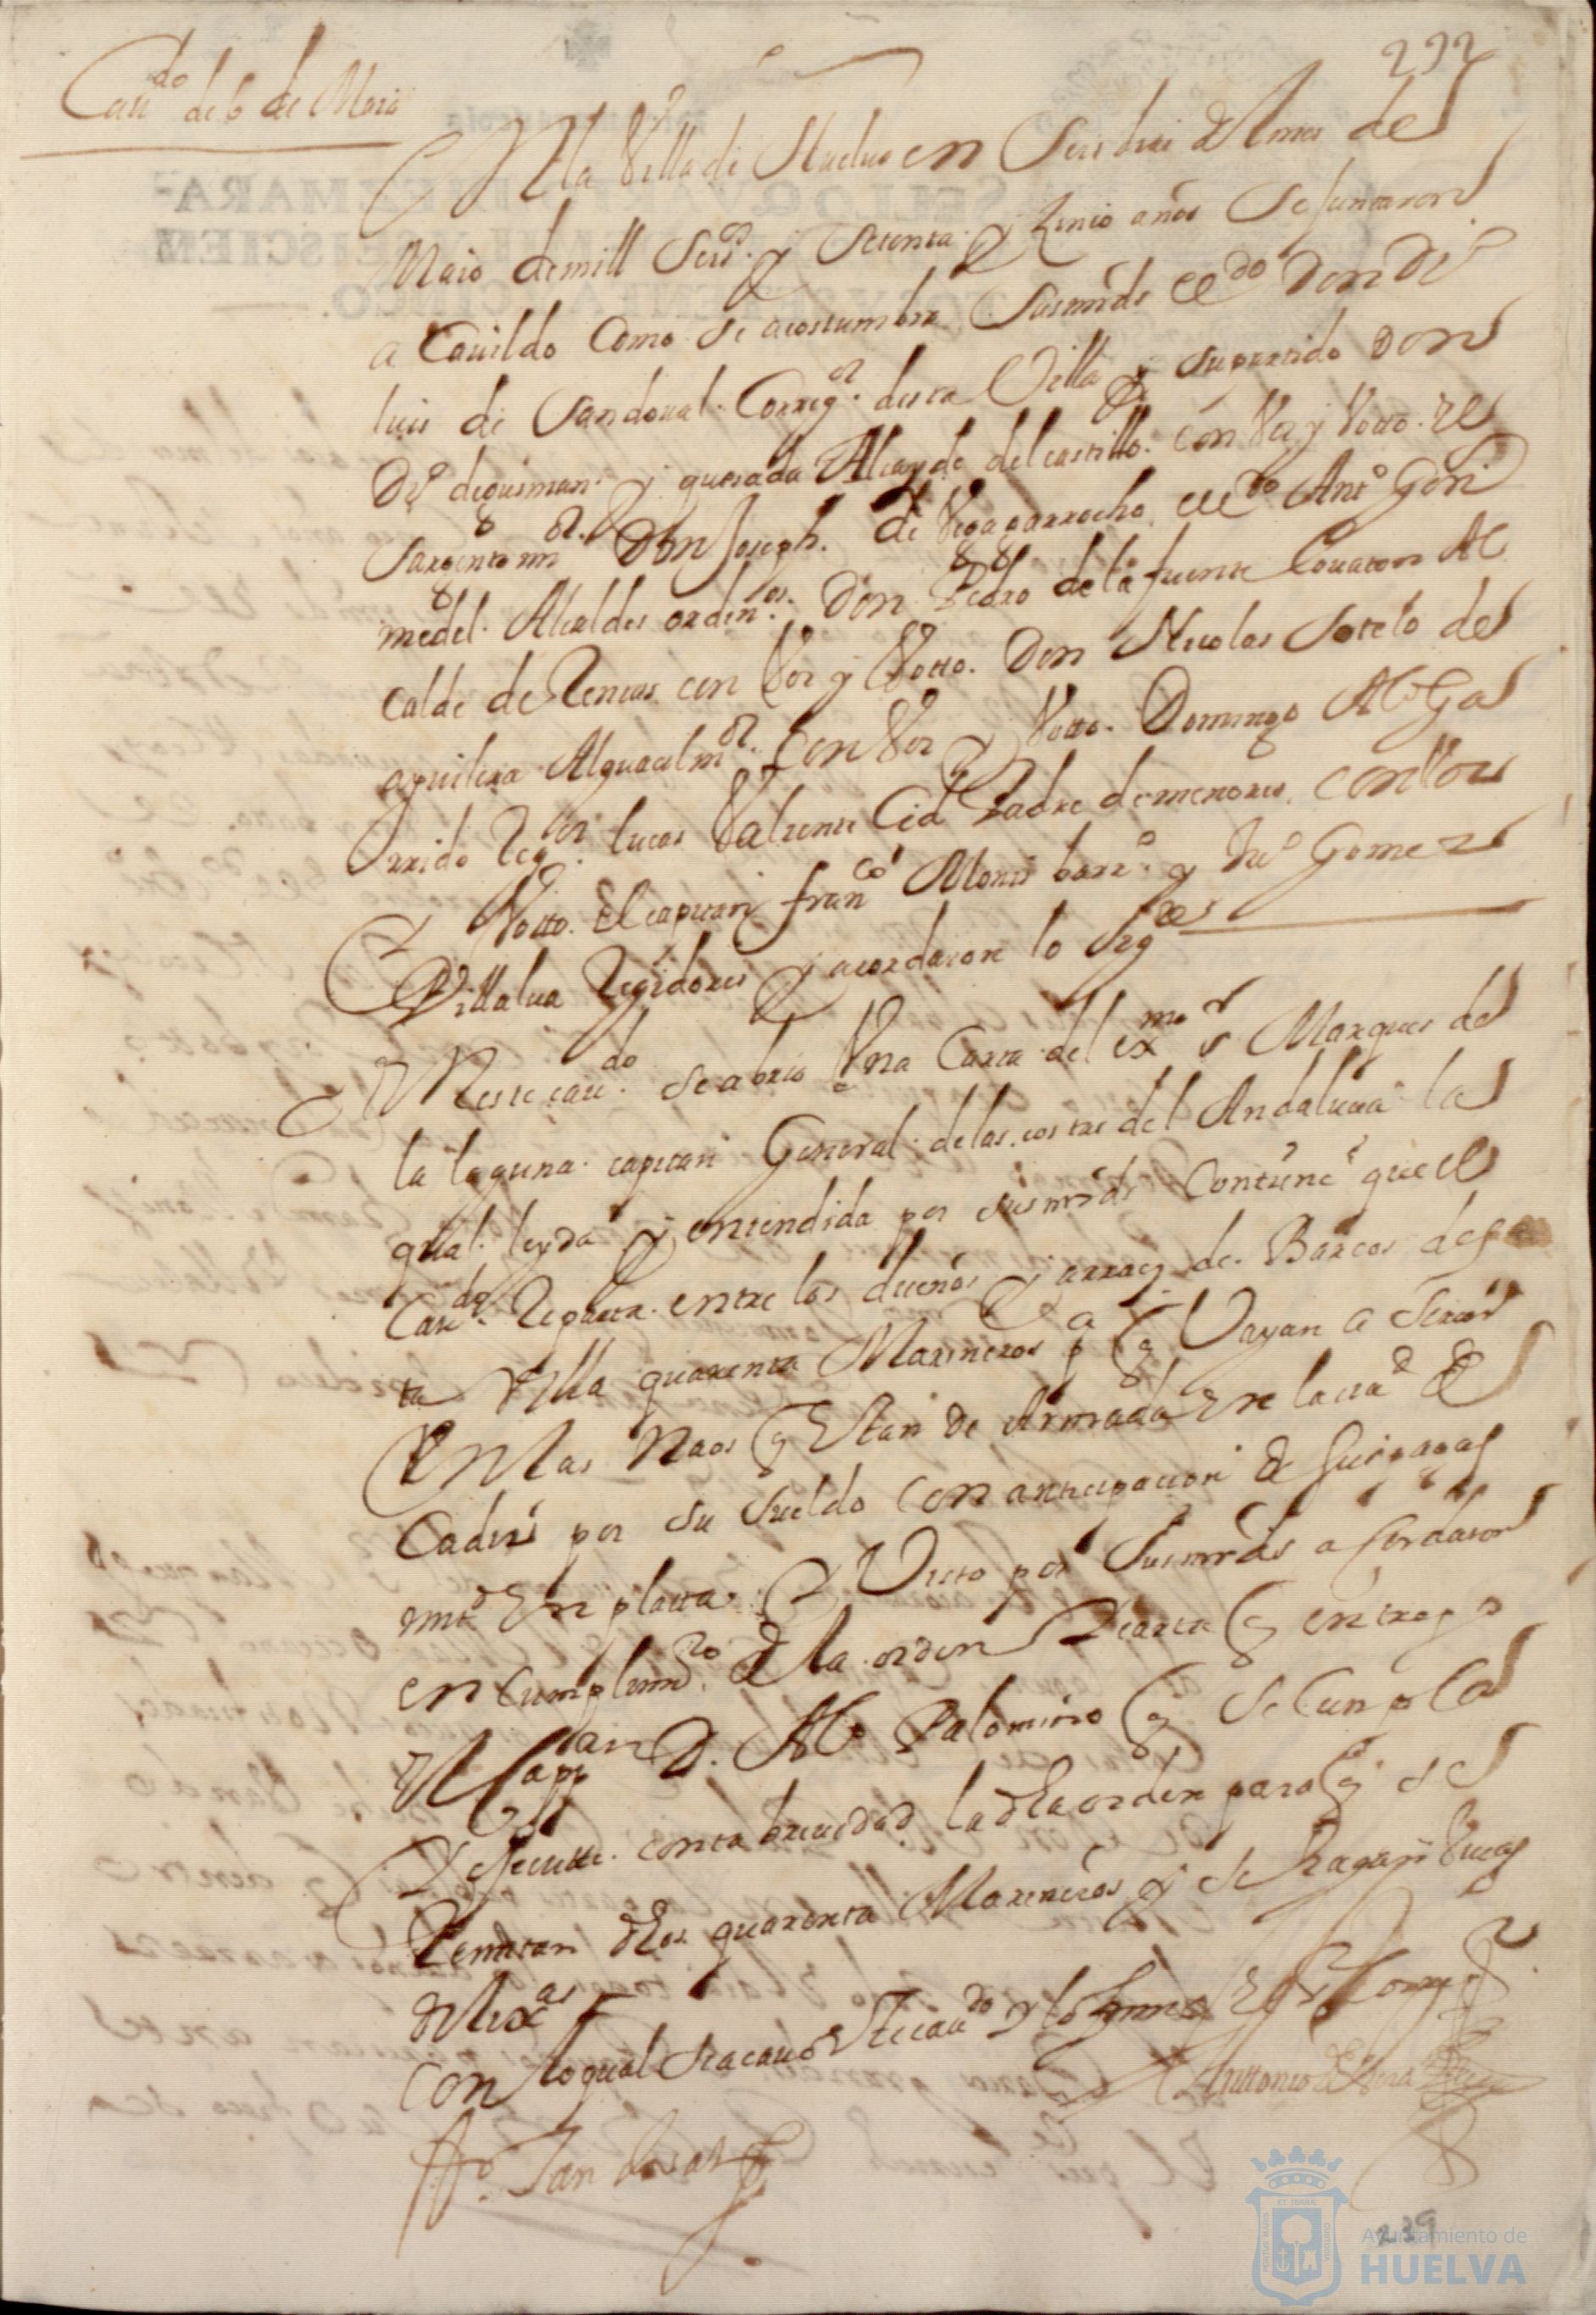 232
Cauᵈᵒ de 6 de Maio
En la Villa de Huelua en Seis dias del mes de
Maio de mill Seisᵒˢ y Setenta y Zinco años Se Juntaron
a Cauildo Como Se acostumbra Susmrds el Lᵈᵒ Don Dᵒ
luis de Sandoual Corregᵒʳ desta Villa y supartido Don
Dᵒ de gusman y quesada Alcayde del castillo con Voz y Votto el
Sargento mᵒʳ Don Joseph de Vega garrocho el Lᵈᵒ Antᵒ Gonz
medel Alcaldes ordinᵒˢ Don Pedro de la fuente Couaron Al
calde de Sencas con Voz y Votto Don Nicolas Sotelo de
aguilera Alguacil mᵒʳ con Voz y Votto Domingo Alᵒ Ga
rrido Regᵒʳ lucas Valiente Cid Padre de menores con Voz
y Votto El capitan franᶜᵒ Alonso barrᵒ y Juᵒ Gomez
Villalua Regidores y acordaron lo Sigᵗᵉ
En este cauᵈᵒ Se abrio Vna Carta del exᵐᵒ sʳ Marques de
la laguna capitan General de las costas del Andalucia la
qual leyda y entendida por sus mrds Contiene que el
Cauᵈᵒ Reparta entre los dueños y arraez de Barcos des
ta Villa quarenta Marineros pᵃ q Vayan a Seruir
En las Naos q Estan de Armada En la ciuᵈ de
Cadiz por su sueldo con anticipacion de sus pagas
En platta Y Visto por Susmrds acordaron
en cumplimᵗᵒ de la orden Y carta q entrego
El Cappᵃⁿ D. Alᵒ Palomino q Se Cunpla
Y Execute con la breuedad la dha orden para q se
Remitan dhos quarenta Marineros y se hagan Viuas
dilixᵃˢ
Con lo qual Se acauo Este cauᵈᵒ y lo firmo El Sʳ Corregᵒʳ
Anttonio de
Dᵒ Sandoual
239
Ayuntamiento de
HUELVA